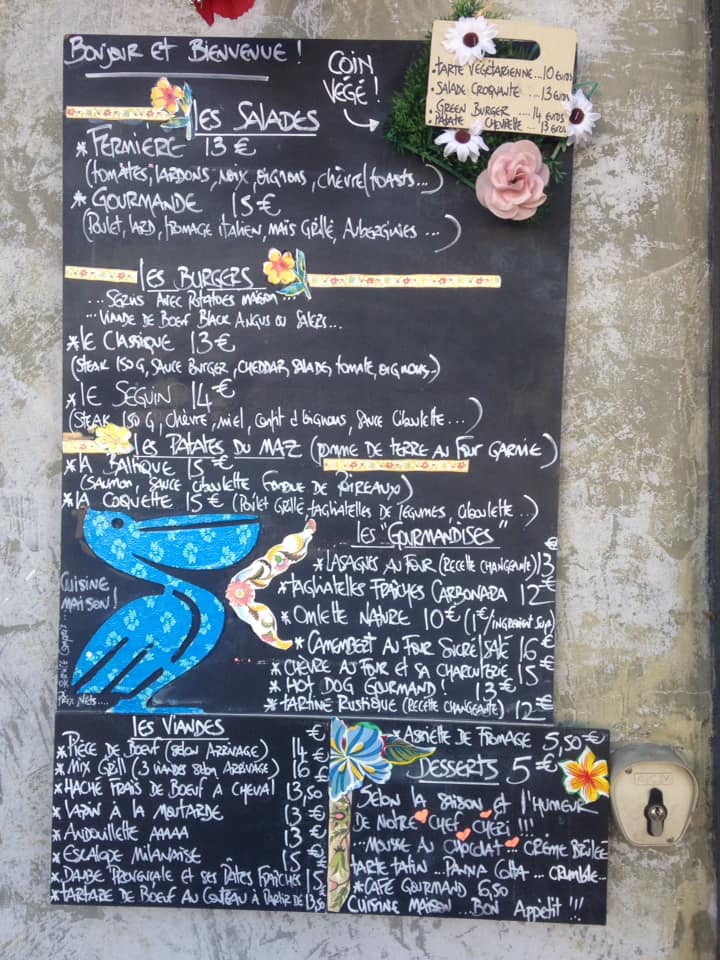 Bonjour et Bienvenue !
Coin
Végé !
* Tarte Végétarienne ... 10 euros
* Salade Croquante ... 13 euros
Green Burger ... 14 euros
Patate Chevrette .. 13 euros
Les Salades
* Fermière 13 €
(Tomates, lardons, noix, oignons, chèvre/toasts...)
* Gourmande 15 €
(Poulet, lard, fromage italien, maïs grillé, aubergines ...)
Les Burgers
... Servis avec Potatoes maison ...
... Viande de Boeuf Black Angus ou Salers...
* Le Classique 13 €
(Steak 150 G, Sauce Burger, cheddar, salade, tomate, oignons..)
* Le Séguin 14 €
(Steak 150 G, Chèvre, miel, confit d'oignons, sauce ciboulette ...)
Les Patates du Maz (pomme de terre au four garnie)
* La Baltique 15 €
(Saumon, sauce ciboulette fondue de poireaux)
* La Coquette 15 € (Poulet grillé, tagliatelles de légumes, ciboulette ...)
Les "Gourmandises"
* Lasagnes au four (recette changeante) 13
* Tagliatelles Fraîches Carbonara 12 €
* Omlette Nature 10 € (1€/ingrédient sup)
* Camembert au Four Sucré/Salé 16 €
* Chèvre au Four et sa Charcuterie 15 €
* Hot Dog Gourmand ! 13 €
* Tartine Rustique (recette changeante) 12 €
Cuisine
maison !
Service compris ...
Prix nets....
Les Viandes €
* Pièce de Boeuf (selon arrivage) 14 €
* Mix Grill (3 viandes selon arrivage) 16 €
* Haché Frais de Boeuf à Cheval 13,50
* Lapin à la Moutarde 13 €
* Andouillette AAAAA 13 €
* Escalope Milanaise 15 €
* Daube Provençale et ses Pâtes Fraîches 15
* Tartare de Boeuf au Couteau à partir de 13,50
* Assiette de Fromage 5,50 €
Desserts 5 €
Selon la saison et l'humeur
de notre Chef Chéri !!!
... Mousse au Chocolat ... Crème Brûlée
Tarte Tatin ... Panna Cotta ... Crumble...
* Café Gourmand 6,50
Cuisine Maison ... Bon Appétit !!!